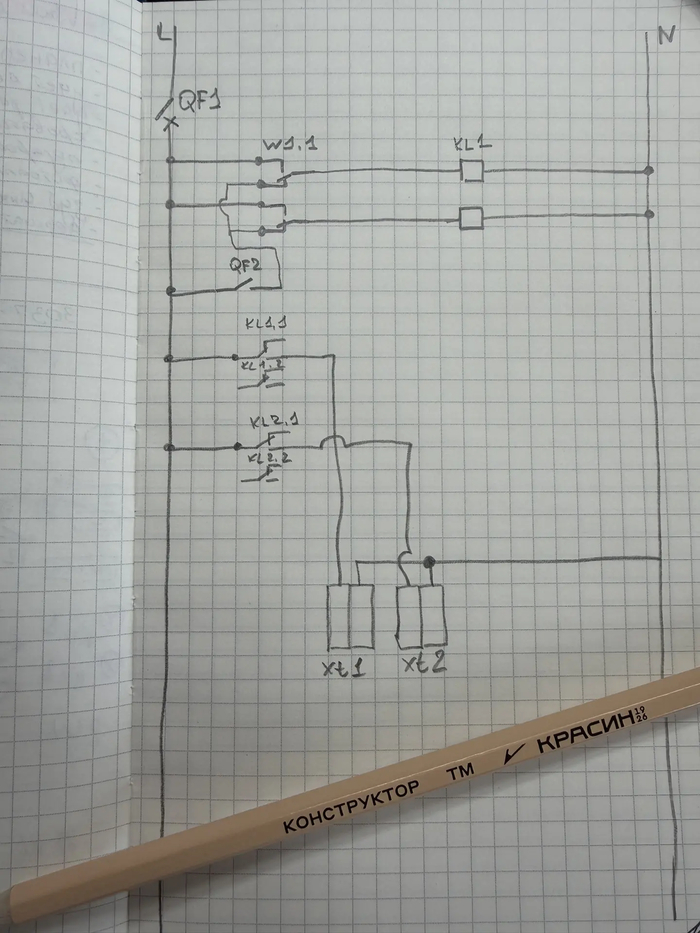 L
N
QF1
W1.1
KL1
QF2
KL1.1
KL1.2
KL2.1
KL2.2
xt1
xt2
КОНСТРУКТОР ТМ КРАСИН 1926